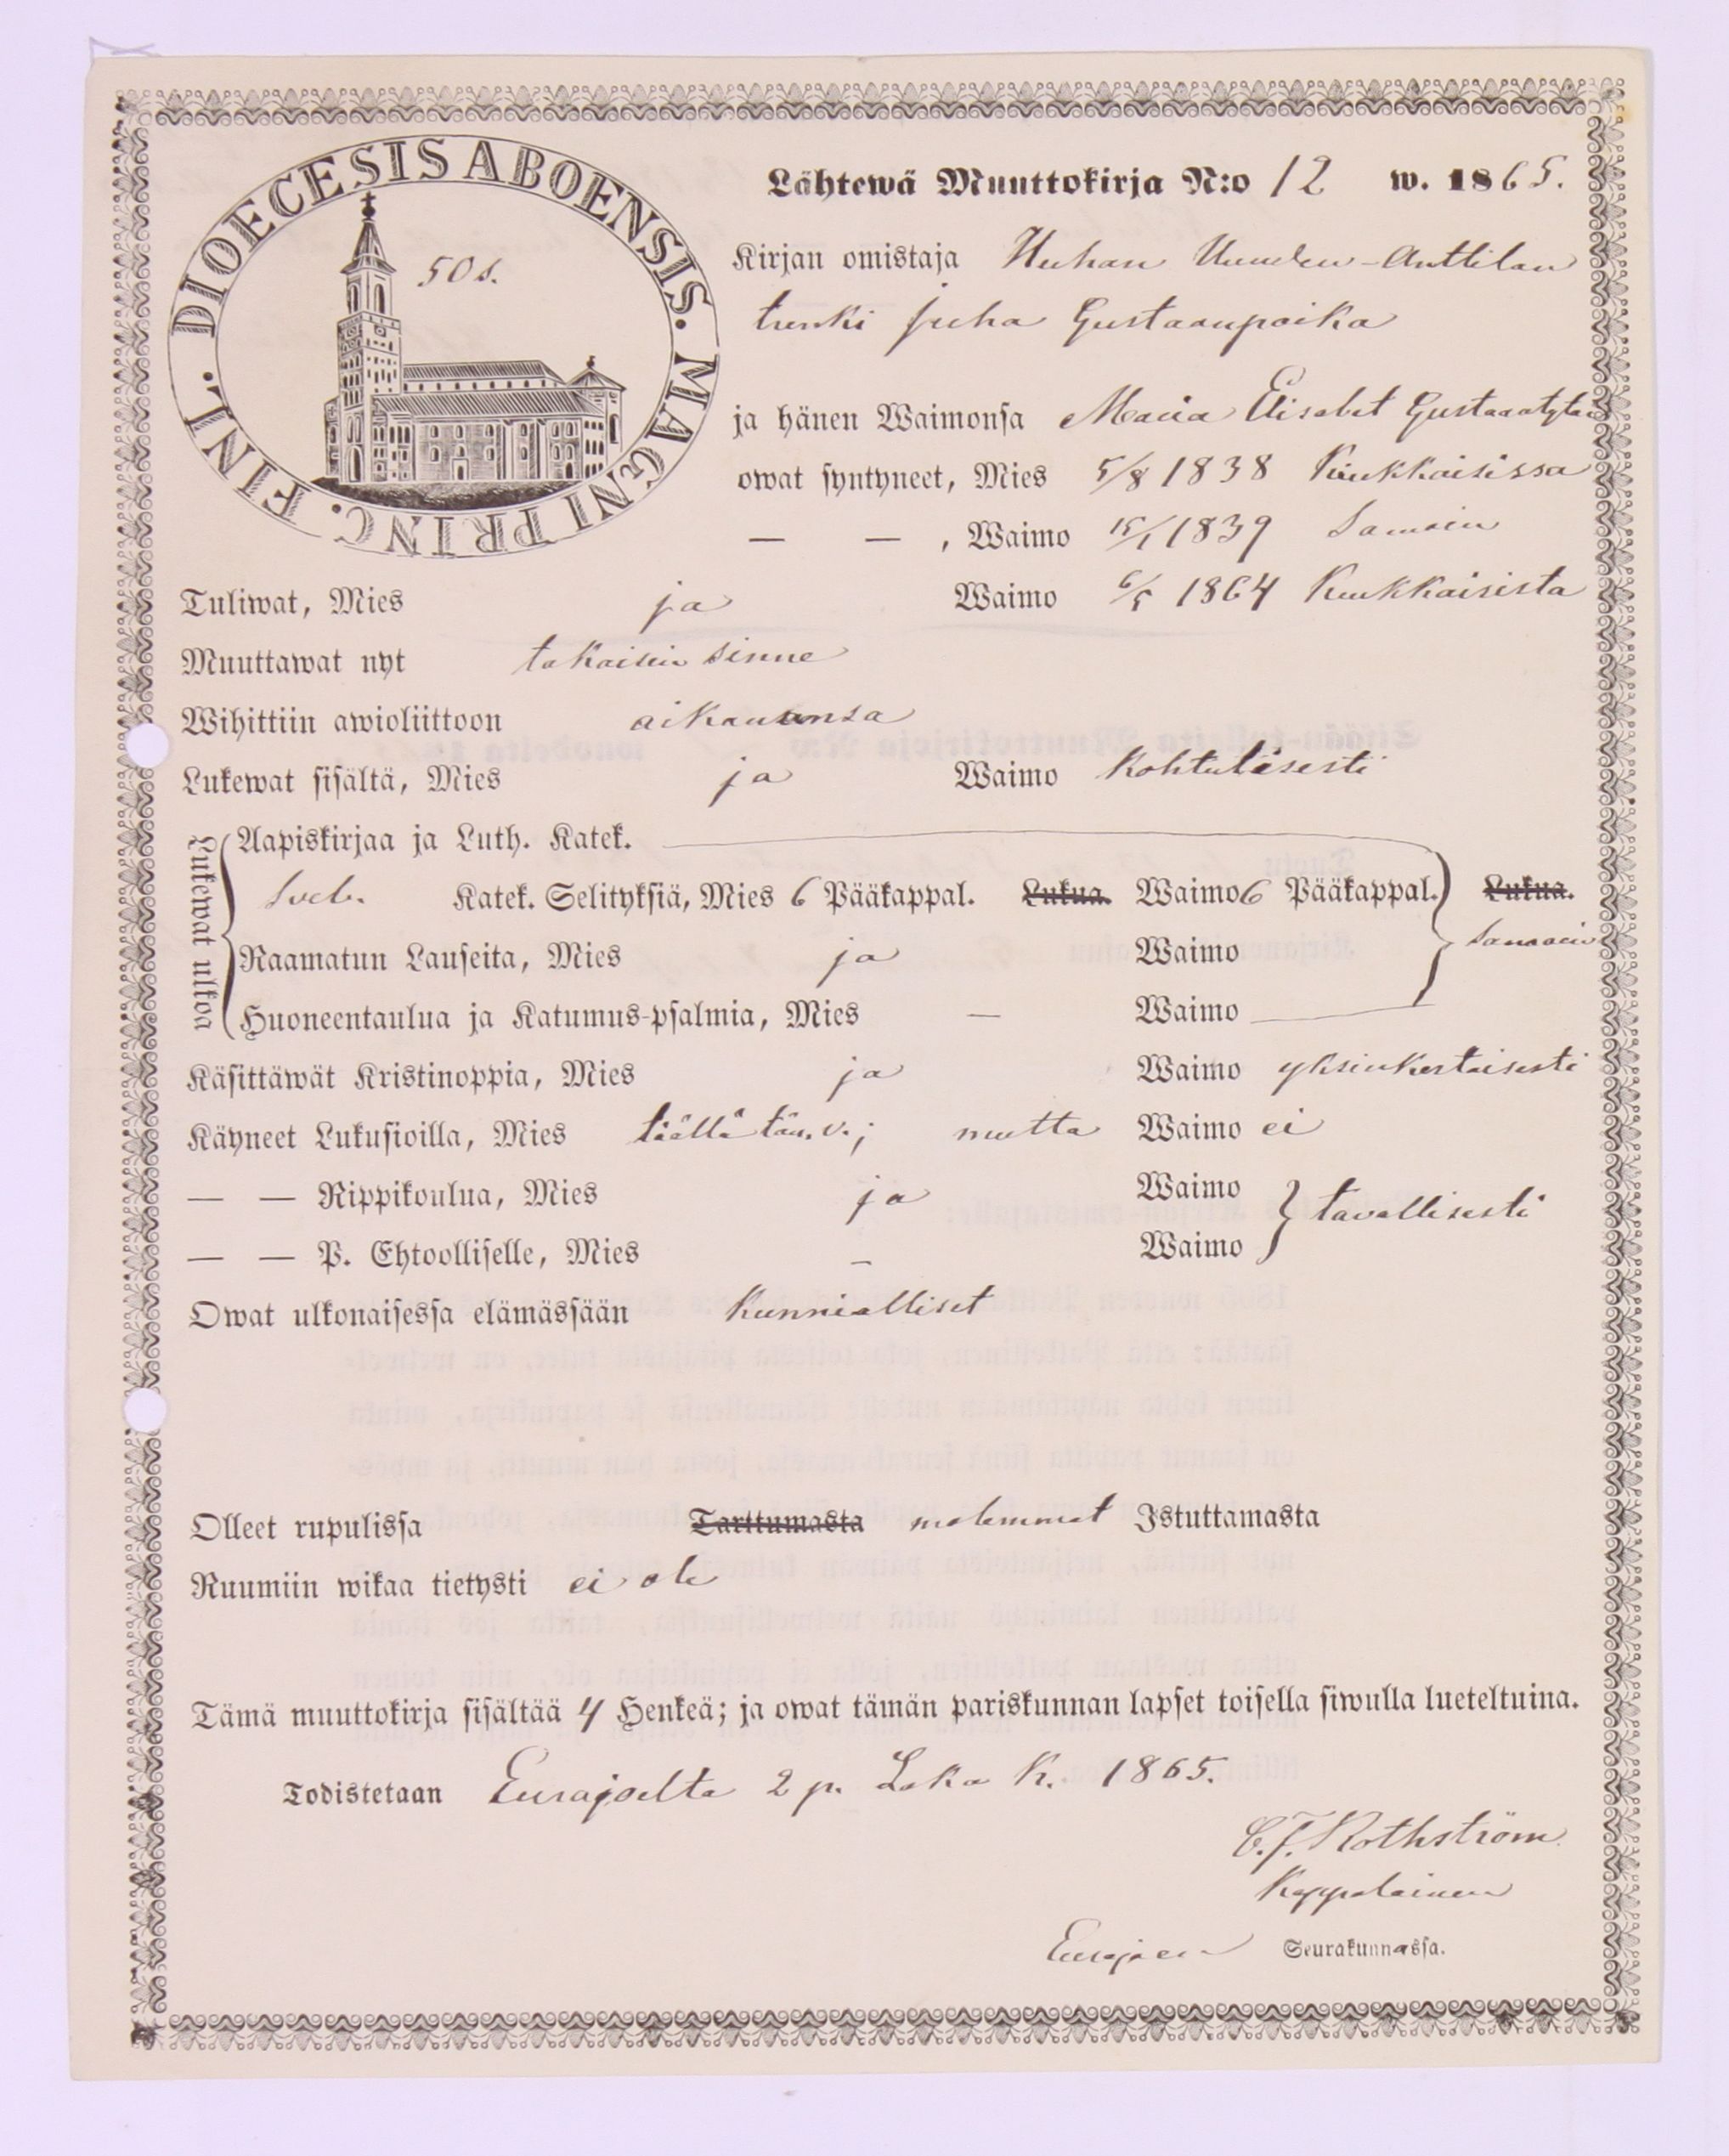 DIOECESIS ABOENSIS. MAGNI PRINC. FINL.
50 s.
Lähtewä Muuttokirja N:o 12 w. 1865.
Kirjan omistaja Huhan Uuden-Anttilan
trenki Juha Gustaanpoika
ja hänen Waimonsa Maria Elisabet Gustaantytär
owat syntyneet, Mies 5/8 1838 Kiukkaisissa
— — , Waimo 15/1 1839 Samoin
Tuliwat, Mies ja Waimo 6/5 1864 Kiukkaisista
Muuttawat nyt takaisin sinne
Wihittiin awioliittoon aikanansa
Lukewat sisältä, Mies ja Waimo Kohtulisesti
Lukewat ulkoa
Aapiskirjaa ja Luth. Katek.
Sveb. Katek. Selityksiä, Mies 6 Pääkappal. Lukua. Waimo 6 Pääkappal. Lukua.
Raamatun Lauseita, Mies ja Waimo samoin
Huoneentaulua ja Katumus-psalmia, Mies — Waimo
Käsittäwät Kristinoppia, Mies ja Waimo yksinkertaisesti
Käyneet Lukusioilla, Mies täällä tän. v.; mutta Waimo ei
— — Rippikoulua, Mies ja Waimo tavallisesti
— — P. Ehtoolliselle, Mies – Waimo
Owat ulkonaisessa elämässään Kunnialliset
Olleet rupulissa Tarttumasta molemmat Istuttamasta
Ruumiin wikaa tietysti ei ole
Tämä muuttokirja sisältää 4 Henkeä; ja owat tämän pariskunnan lapset toisella siwulla lueteltuina.
Todistetaan Eurajoelta 2 p. Loka K. 1865.
C. F. Rothström
Kappalainen
Eurajoen Seurakunnassa.